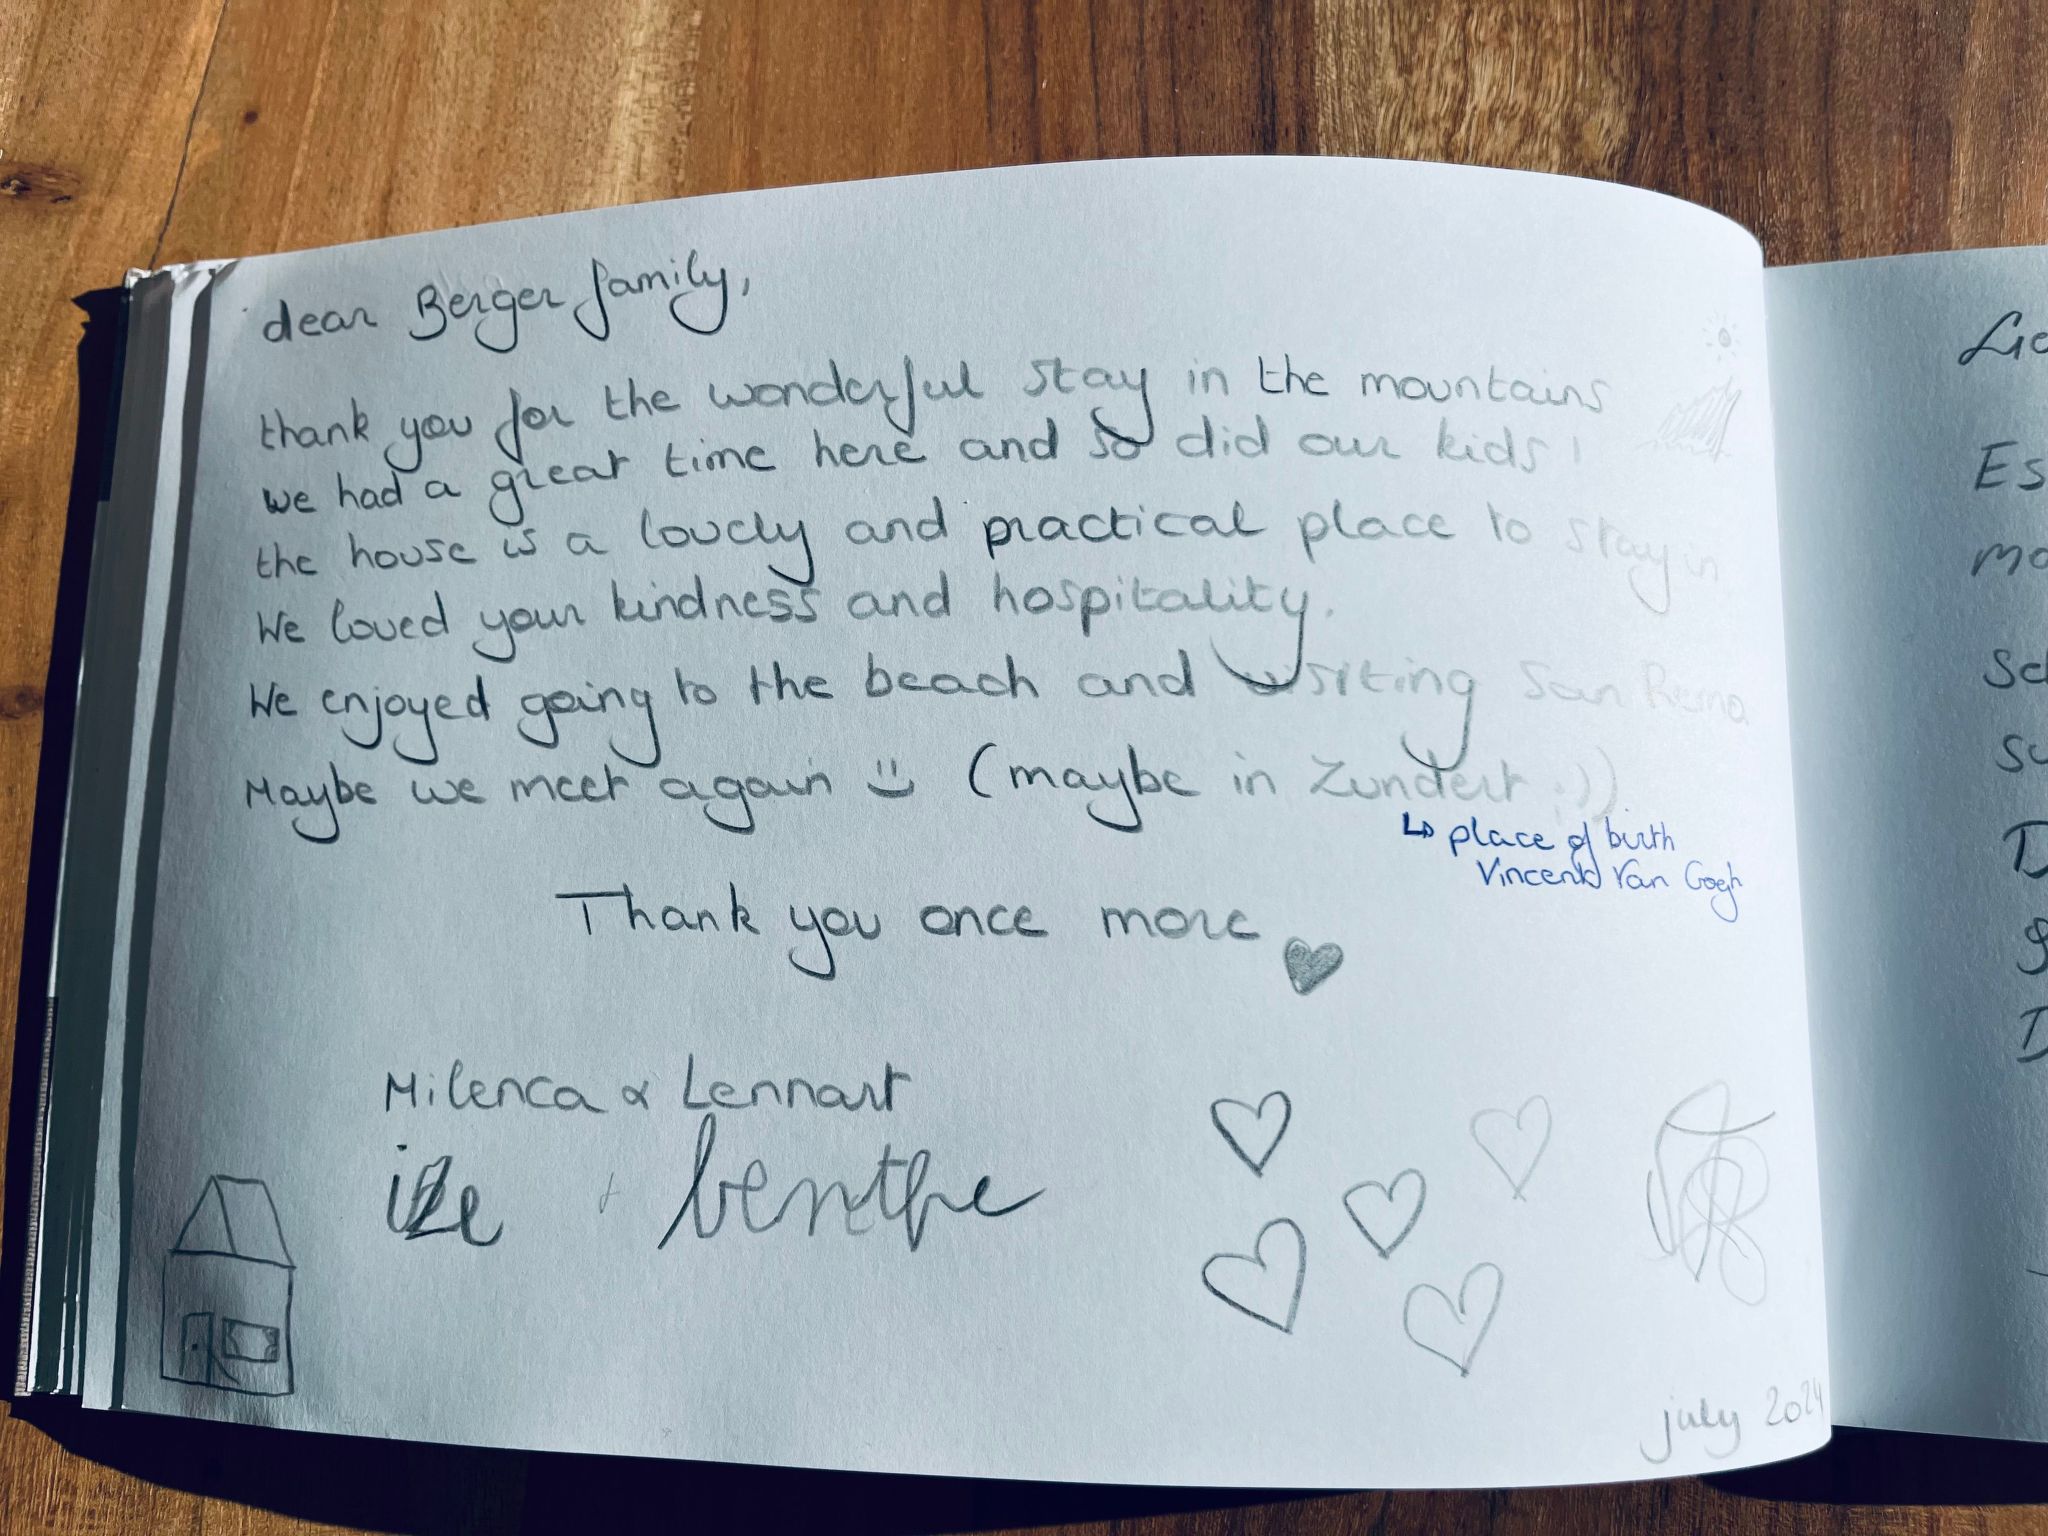 dear Berger family,
thank you for the wonderful stay in the mountains
we had a great time here and so did our kids!
the house is a lovely and practical place to stay in
We loved your kindness and hospitality.
We enjoyed going to the beach and visiting San Remo
Maybe we meet again :) (maybe in Zundert ;))
↳ place of birth
Vincent Van Gogh
Thank you once more ♥
Milenca & Lennart
+ benthe
july 2024
Es